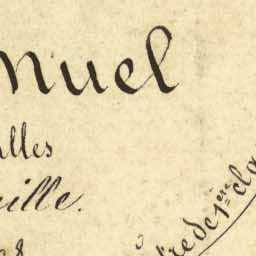 nuel
lles
ille.
tre de 1ère cla